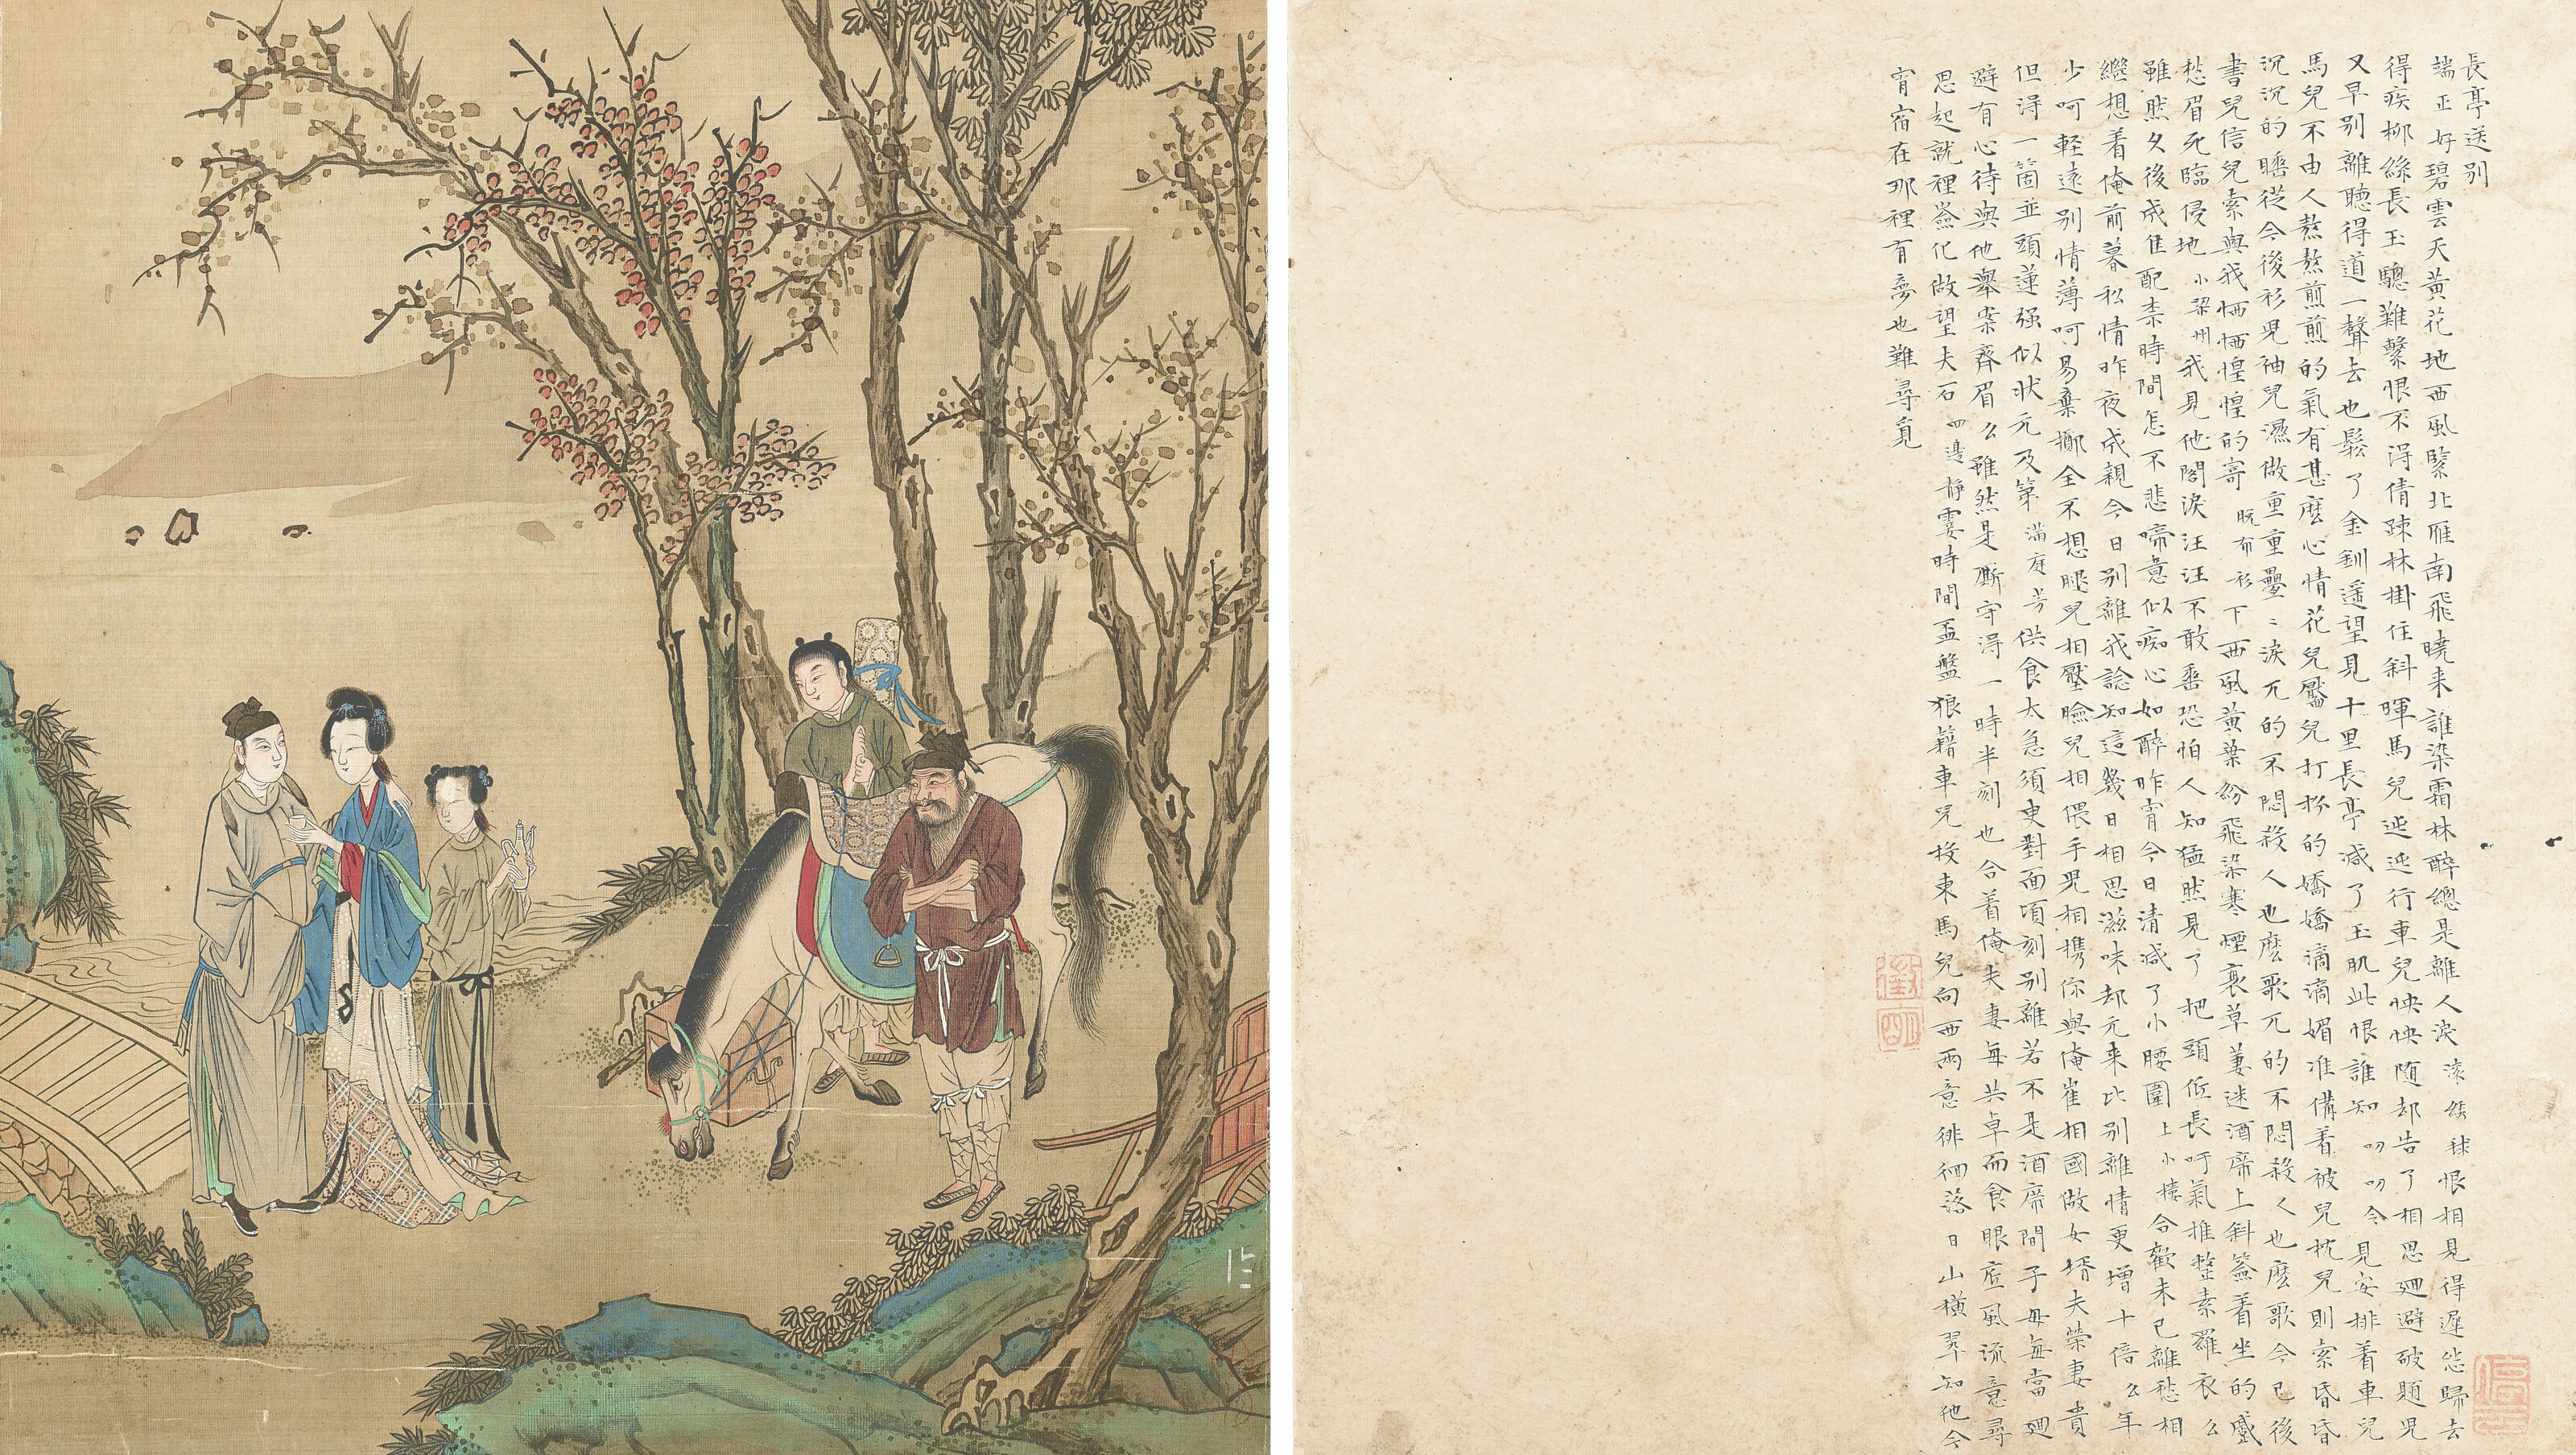 長亭送別
端正好碧雲天黃花地西風緊北雁南飛曉来誰染霜林醉總是離人淚滚綉毬恨相見得遲怨歸去
得疾柳絲長玉驄難繫恨不得倩踈林掛住斜暉馬兒迍迍行車兒怏怏随却告了相思廻避破題兒
又早别離聽得道一聲去也鬆了金釧遥望見十里長亭减了玉肌此恨誰知叨叨令見安排着車兒
馬兒不由人熬熬煎煎的氣有甚麽心情花兒靨兒打扮的嬌嬌滴滴媚准備着被兒枕兒則索昏昏
沉沉的睡從今後衫兒袖兒濕做重重疊〻淚兀的不悶殺人也麽歌兀的不悶殺人也麽歌今已後
書兒信兒索與我恓恓惶惶的寄脱布衫下西風黃葉紛飛染寒煙衰草萋迷酒席上斜簽着坐的蹙
愁眉死臨侵地小梁州我見他閣淚汪汪不敢垂恐怕人知猛然見了把頭低長吁氣推整素羅衣么
雖然久後成佳配柰時間怎不悲啼意似痴心如醉昨宵今日清减了小腰圍上小樓合歡未已離愁相
繼想着俺前暮私情昨夜成親今日别離我諗知這幾日相思滋味却元来比别離情更增十倍么年
少呵輕遠别情薄呵易棄擲全不想腿兒相壓臉兒相偎手兒相携你與俺崔相國做女壻夫榮妻貴
但得一箇並頭蓮强似状元及第滿庭芳供食太急須臾對面頃刻别離若不是酒席間子母每當廻
避有心待與他舉案齊眉么雖然是厮守得一時半刻也合着俺夫妻每共卓而食眼底風流意尋
思起就裡嶮化做望夫石四邊静霎時間盃盤狼籍車兒投東馬兒向西兩意徘徊落日山横翠知他今
宵宿在那裡有夢也難尋覓
徵明
停雲